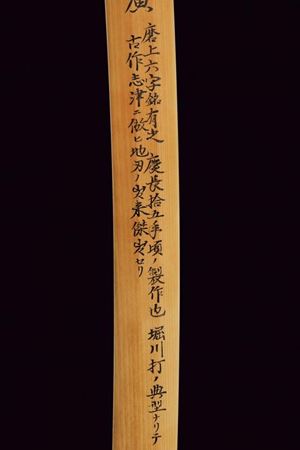 磨上六字銘有之 慶長拾五年頃ノ製作也 堀川打ノ典型ナリテ
古作志津ニ倣ヒ地刃ノ出来傑出セリ